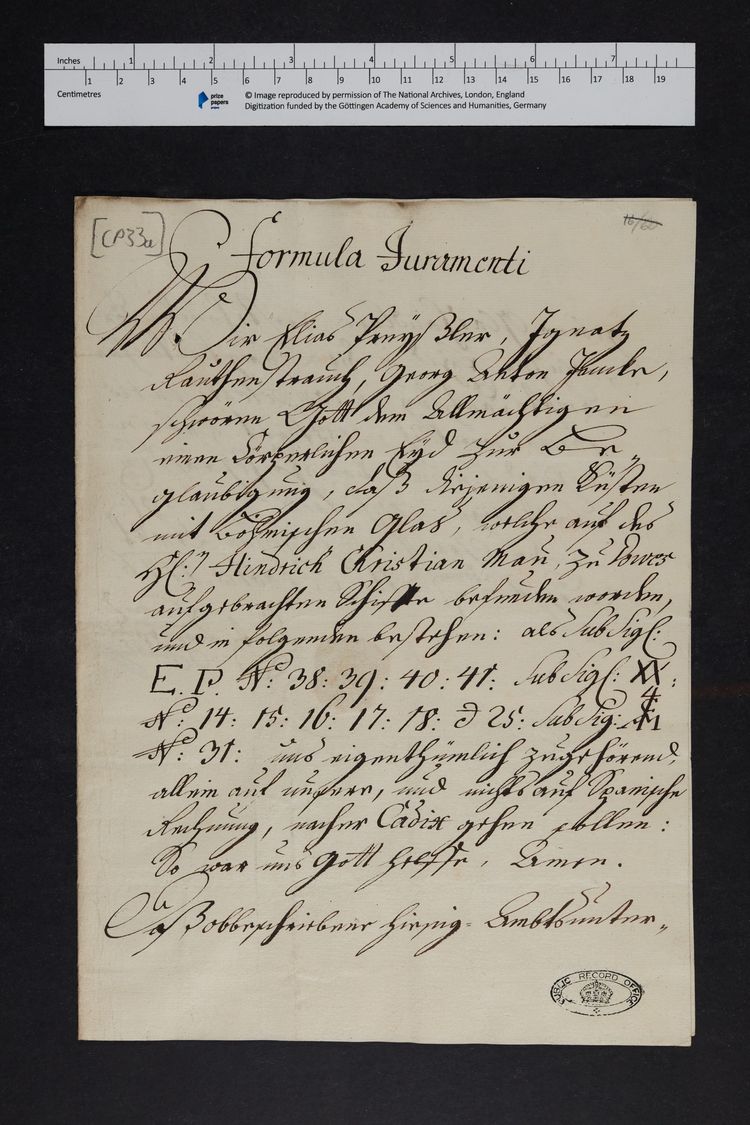 Inches 1 2 3 4 5 6 7
1 2 3 4 5 6 7 8 9 10 11 12 13 14 15 16 17 18 19
Centimetres
prize papers
© Image reproduced by permission of The National Archives, London, England
Digitization funded by the Göttingen Academy of Sciences and Humanities, Germany
[CP33a]
16/60
Formula Juramenti
Wir Elias Preyßler, Ignatz
Rauthenstrauch, Georg Anton Jancke,
schwören Gott dem Allmächtigen
einen Cörperlichen Eyd zur Be„
glaubigung, daß diejenigen Küsten
mit Böhmischen Glas, welche auf des
Hl:n Hindrich Christian Man, zu Dower
aufgebrachten Schiffe befunden worden,
und in folgenden bestehen: als sub Sigl:
E. P. No: 38: 39: 40: 41: sub Sigl:
No: 14: 15: 16: 17: 18: 25: sub Sig:
No: 31: uns eigenthümlich zugehörend,
allein auf unsere, und nichts auf Spanische
Rechnung, nacher Cadix gehen sollen:
So war uns Gott helffe, Amen.
Daß obbeschriebene hiesig- Ambtsunter„
PUBLIC RECORD OFFICE